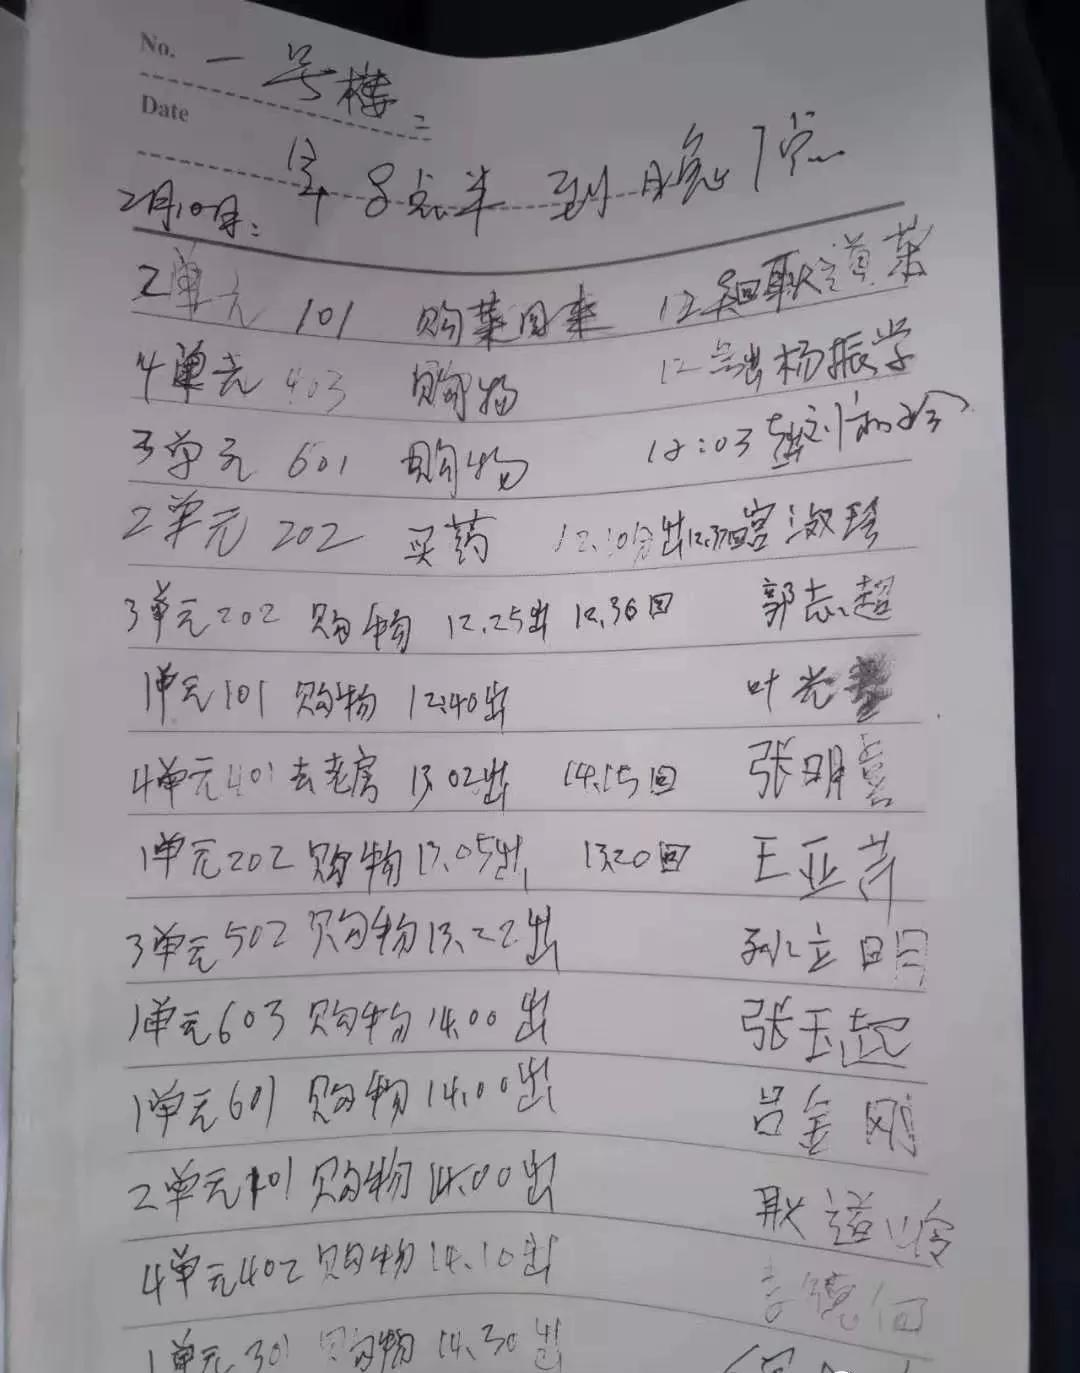 No. 一号楼:
Date
2月10号: 早8点半到晚7点
2单元 101 购菜回来 12
4单元 403 购物 12 出 杨振学
3单元 601 购物 12:03
2单元 202 买药 12.10分出 12.37回 宫淑珍
3单元202 购物 12.25出 12.36回 郭志超
1单元101 购物 12.40出 叶光
4单元401 去老房 13.02出 14.15回 张明喜
1单元202 购物 13.05出 1320回 王亚芹
3单元502 购物 13.22出 孙立明
1单元603 购物 14.00出 张玉起
1单元601 购物 14.00出 吕金刚
2单元101 购物 14.00出 耿
4单元402 购物 14.10出 李德
1单元301 购物 14.30出